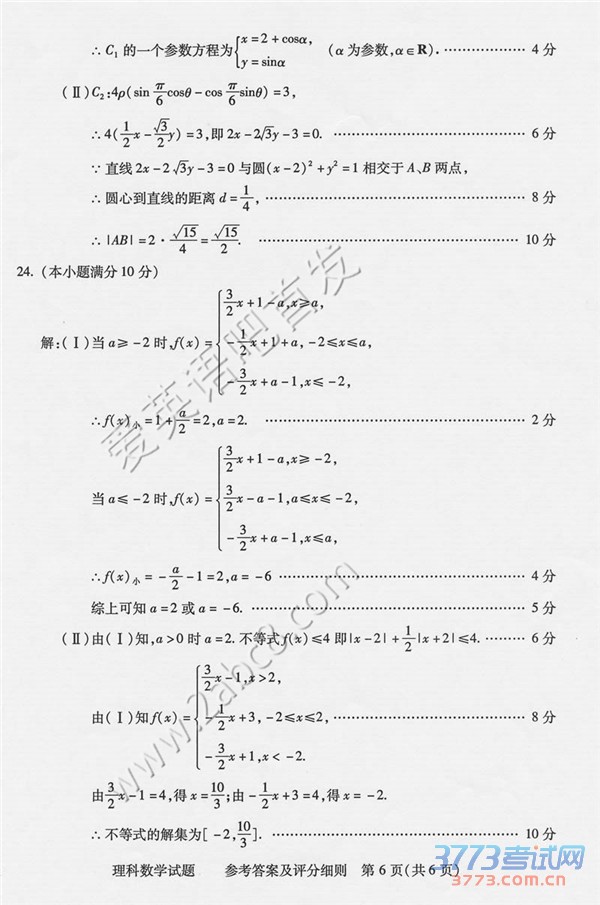 ∴ C₁ 的一个参数方程为{x=2+cosα, y=sinα (α 为参数,α∈R). ………………… 4 分
(Ⅱ)C₂:4ρ(sin π/6 cosθ－cos π/6 sinθ)=3,
∴ 4(1/2 x－√3/2 y)=3,即 2x－2√3y－3=0. ………………… 6 分
∵ 直线 2x－2√3y－3=0 与圆(x－2)²+y²=1 相交于 A、B 两点,
∴ 圆心到直线的距离 d=1/4, ………………… 8 分
∴ |AB|=2·√15/4=√15/2. ………………… 10 分
24. (本小题满分 10 分)
解:(Ⅰ)当 a≥－2 时,f(x)={3/2 x+1－a,x≥a,
－1/2 x+1+a,－2≤x≤a,
－3/2 x+a－1,x≤－2,
∴f(x)小=1+a/2=2,a=2. ………………… 2 分
当 a≤－2 时,f(x)={3/2 x+1－a,x≥－2,
3/2 x－a－1,a≤x≤－2,
－3/2 x+a－1,x≤a,
∴f(x)小=－a/2－1=2,a=－6 ………………… 4 分
综上可知 a=2 或 a=－6. ………………… 5 分
(Ⅱ)由(Ⅰ)知,a>0 时 a=2. 不等式 f(x)≤4 即|x－2|+1/2|x+2|≤4. ……… 6 分
由(Ⅰ)知 f(x)={3/2 x－1,x>2,
－1/2 x+3,－2≤x≤2, ………………… 8 分
－3/2 x+1,x<－2.
由3/2 x－1=4,得 x=10/3;由－1/2 x+3=4,得 x=－2.
∴不等式的解集为[－2,10/3]. ………………… 10 分
理科数学试题 参考答案及评分细则 第 6 页(共 6 页)
爱英语吧首发
www.2abc8.com
3773考试网
www.3773.com.cn